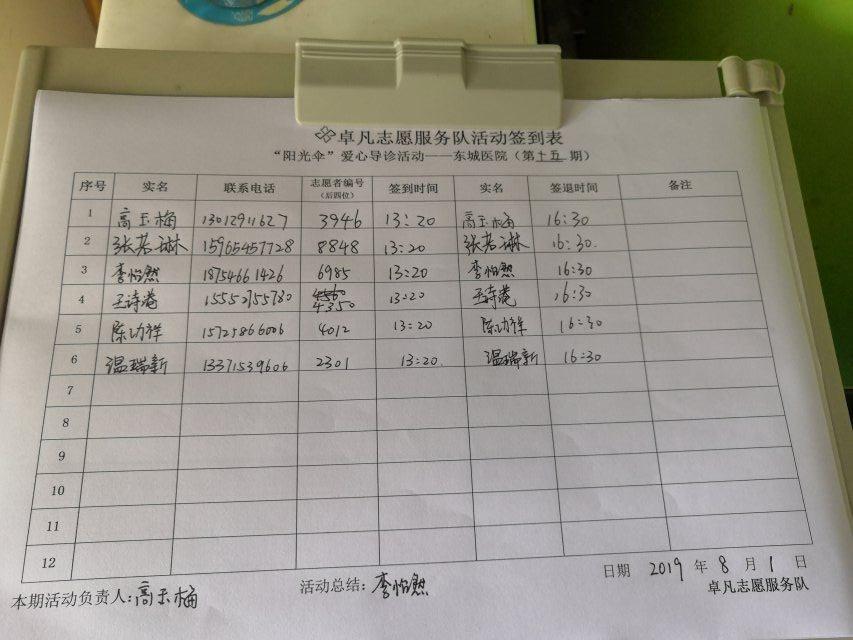 卓凡志愿服务队活动签到表
“阳光伞”爱心导诊活动——东城医院（第十五期）
序号 实名 联系电话 志愿者编号（后四位） 签到时间 实名 签退时间 备注
1 高玉梅 13012911627 3946 13:20 高玉梅 16:30
2 张若琳 15965457728 8848 13:20 张若琳 16:30
3 李怡然 18754661426 6985 13:20 李怡然 16:30
4 王诗港 15552755780 4350 13:20 王诗港 16:30
5 陈功祥 15725866006 4012 13:20 陈功祥 16:30
6 温瑞新 13371539606 2301 13:20 温瑞新 16:30
7
8
9
10
11
12
日期 2019 年 8 月 1 日
本期活动负责人:高玉梅 活动总结:李怡然 卓凡志愿服务队